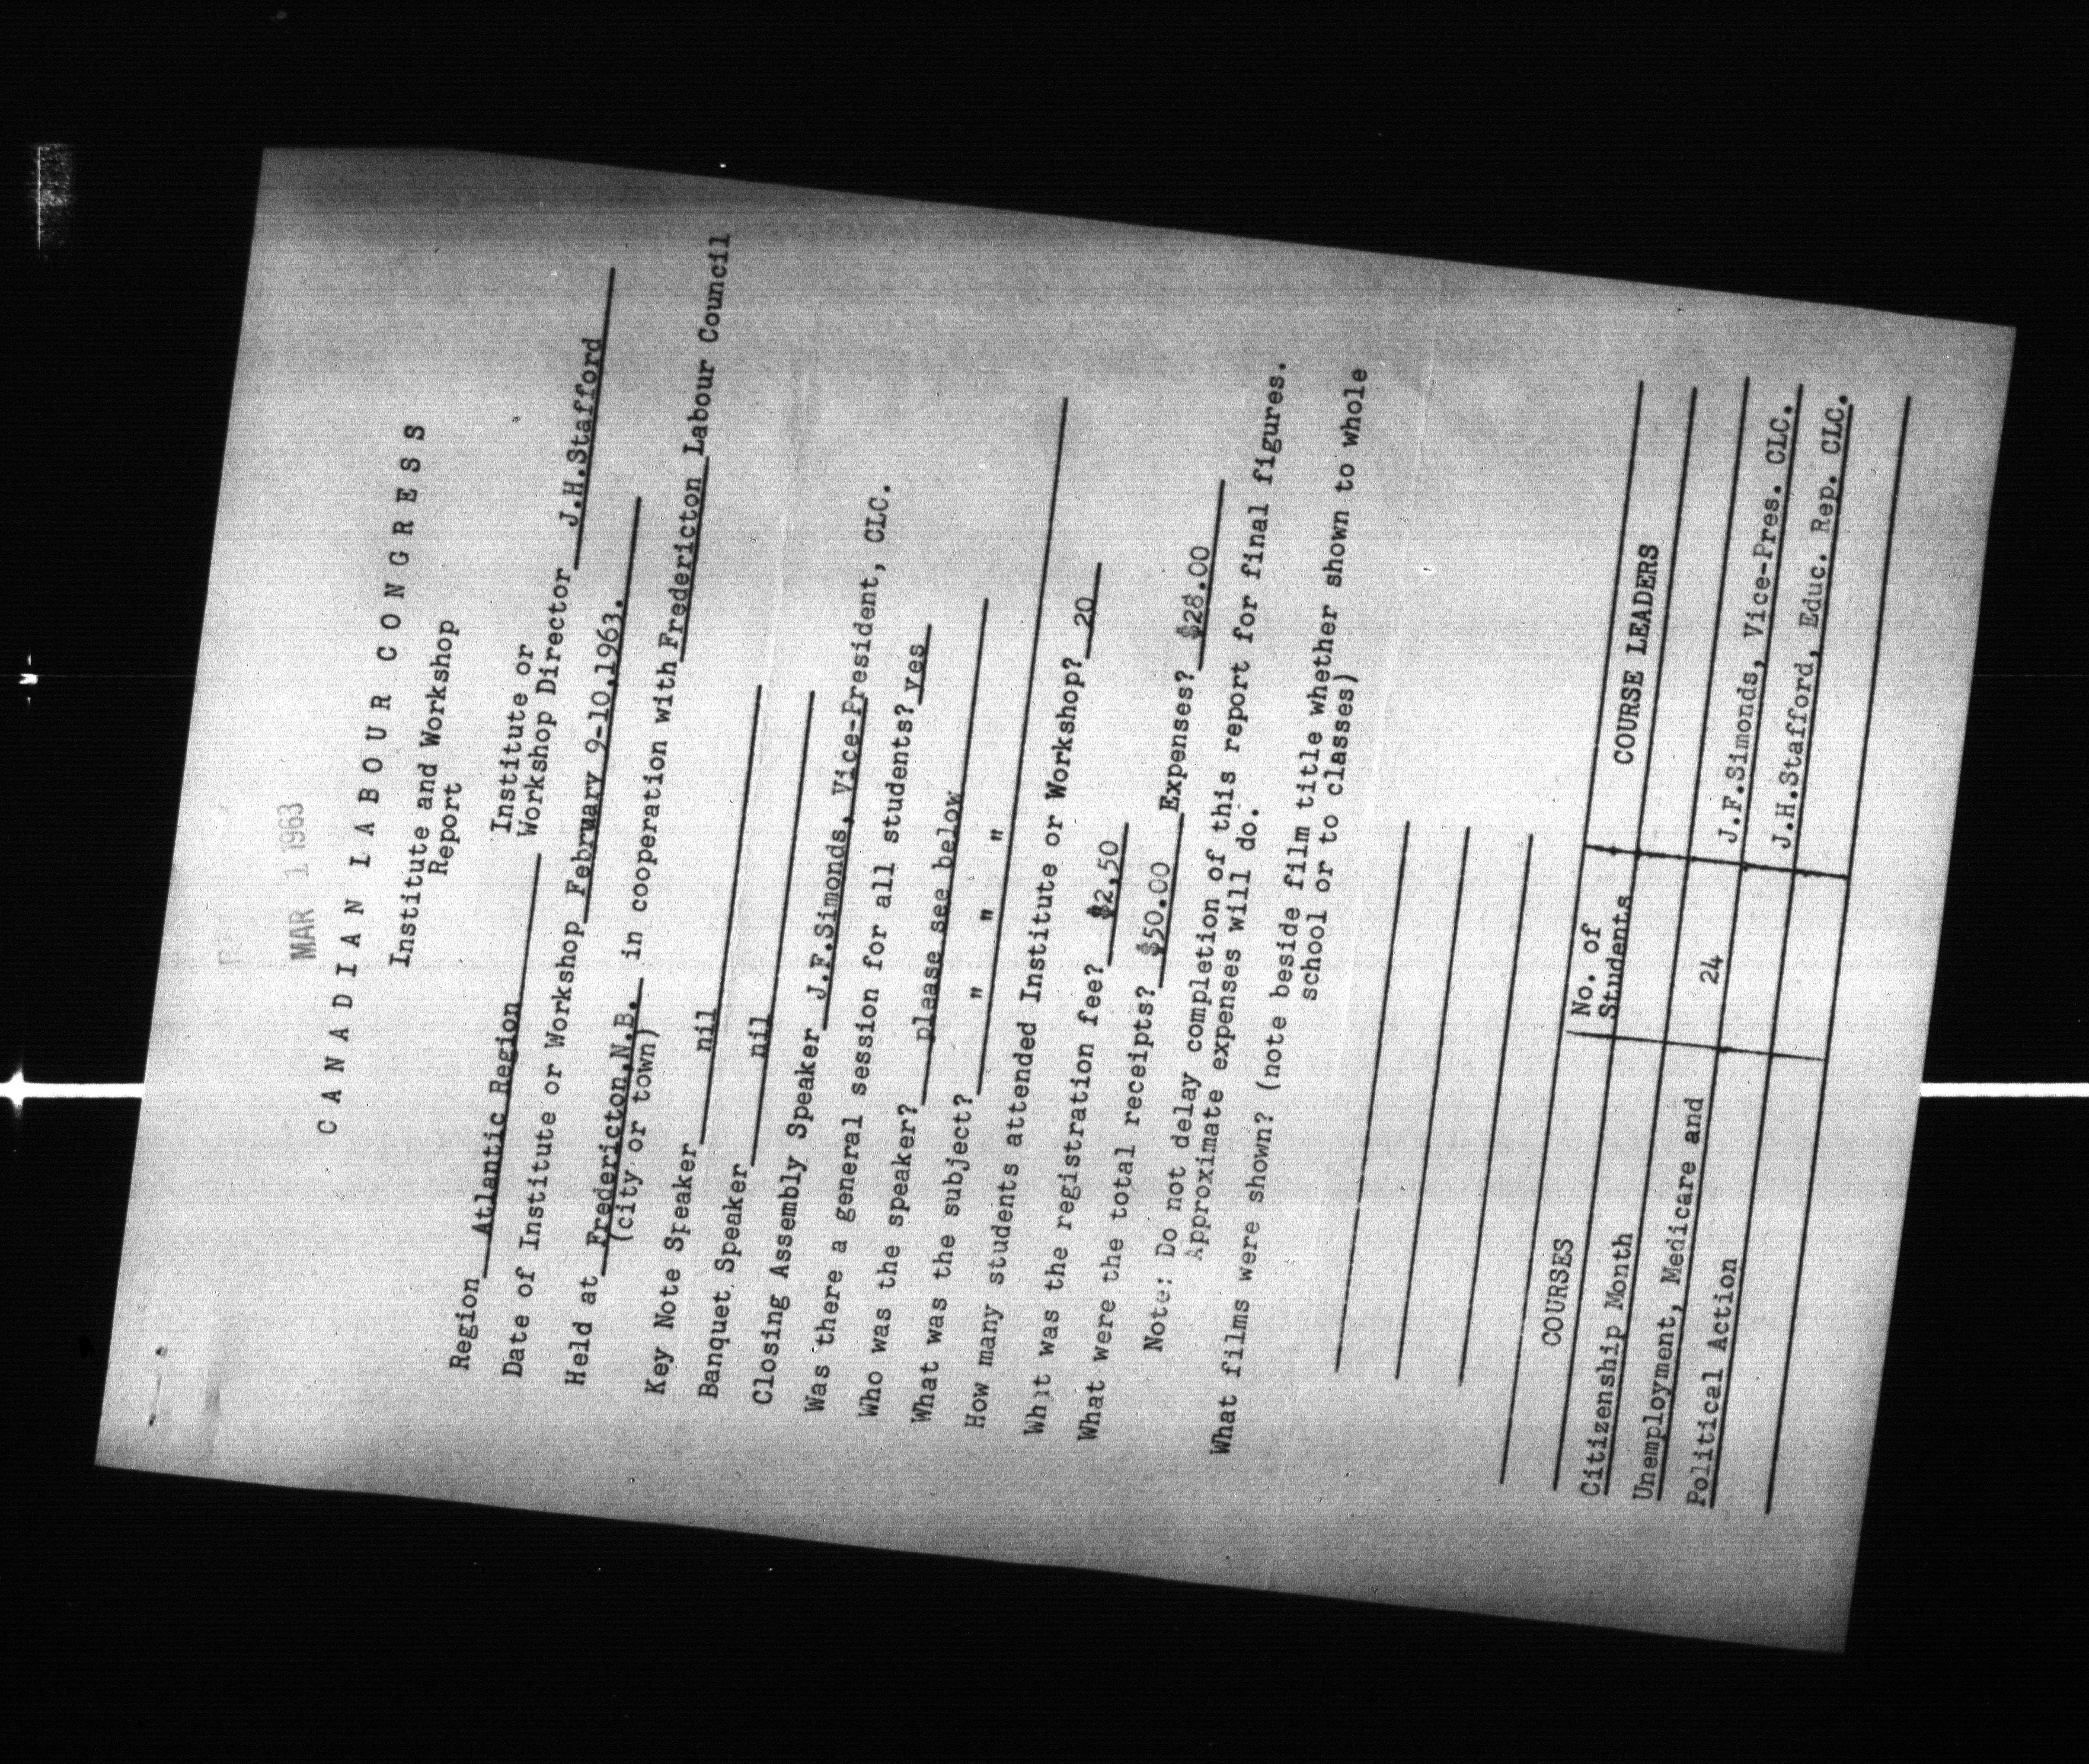 MAR 1 1963
CANADIAN LABOUR CONGRESS
Institute and Workshop
Report
Region Atlantic Region Institute or
Workshop Director J.H.Stafford
Date of Institute or Workshop February 9-10,1963.
Held at Fredericton,N.B. in cooperation with Fredericton Labour Council
(city or town)
Key Note Speaker nil
Banquet Speaker nil
Closing Assembly Speaker J.F.Simonds, Vice-President, CLC.
Was there a general session for all students? yes
Who was the speaker? please see below
What was the subject? " " "
How many students attended Institute or Workshop? 20
What was the registration fee? $2,50
What were the total receipts? $50.00 Expenses? $28.00
Note: Do not delay completion of this report for final figures.
Approximate expenses will do.
What films were shown? (note beside film title whether shown to whole
school or to classes)
COURSES No. of Students COURSE LEADERS
Citizenship Month
Unemployment, Medicare and 24 J.F.Simonds, Vice-Pres. CLC.
Political Action J.H.Stafford, Educ. Rep. CLC.